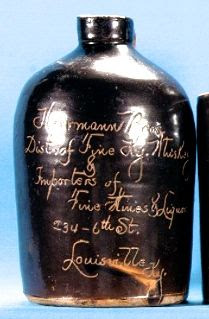 Herrmann Bros.
Dist. of Fine Ky. Whiskey
&
Importers of
Fine Wines & Liquor
234 - 6th St.
Louisville Ky.